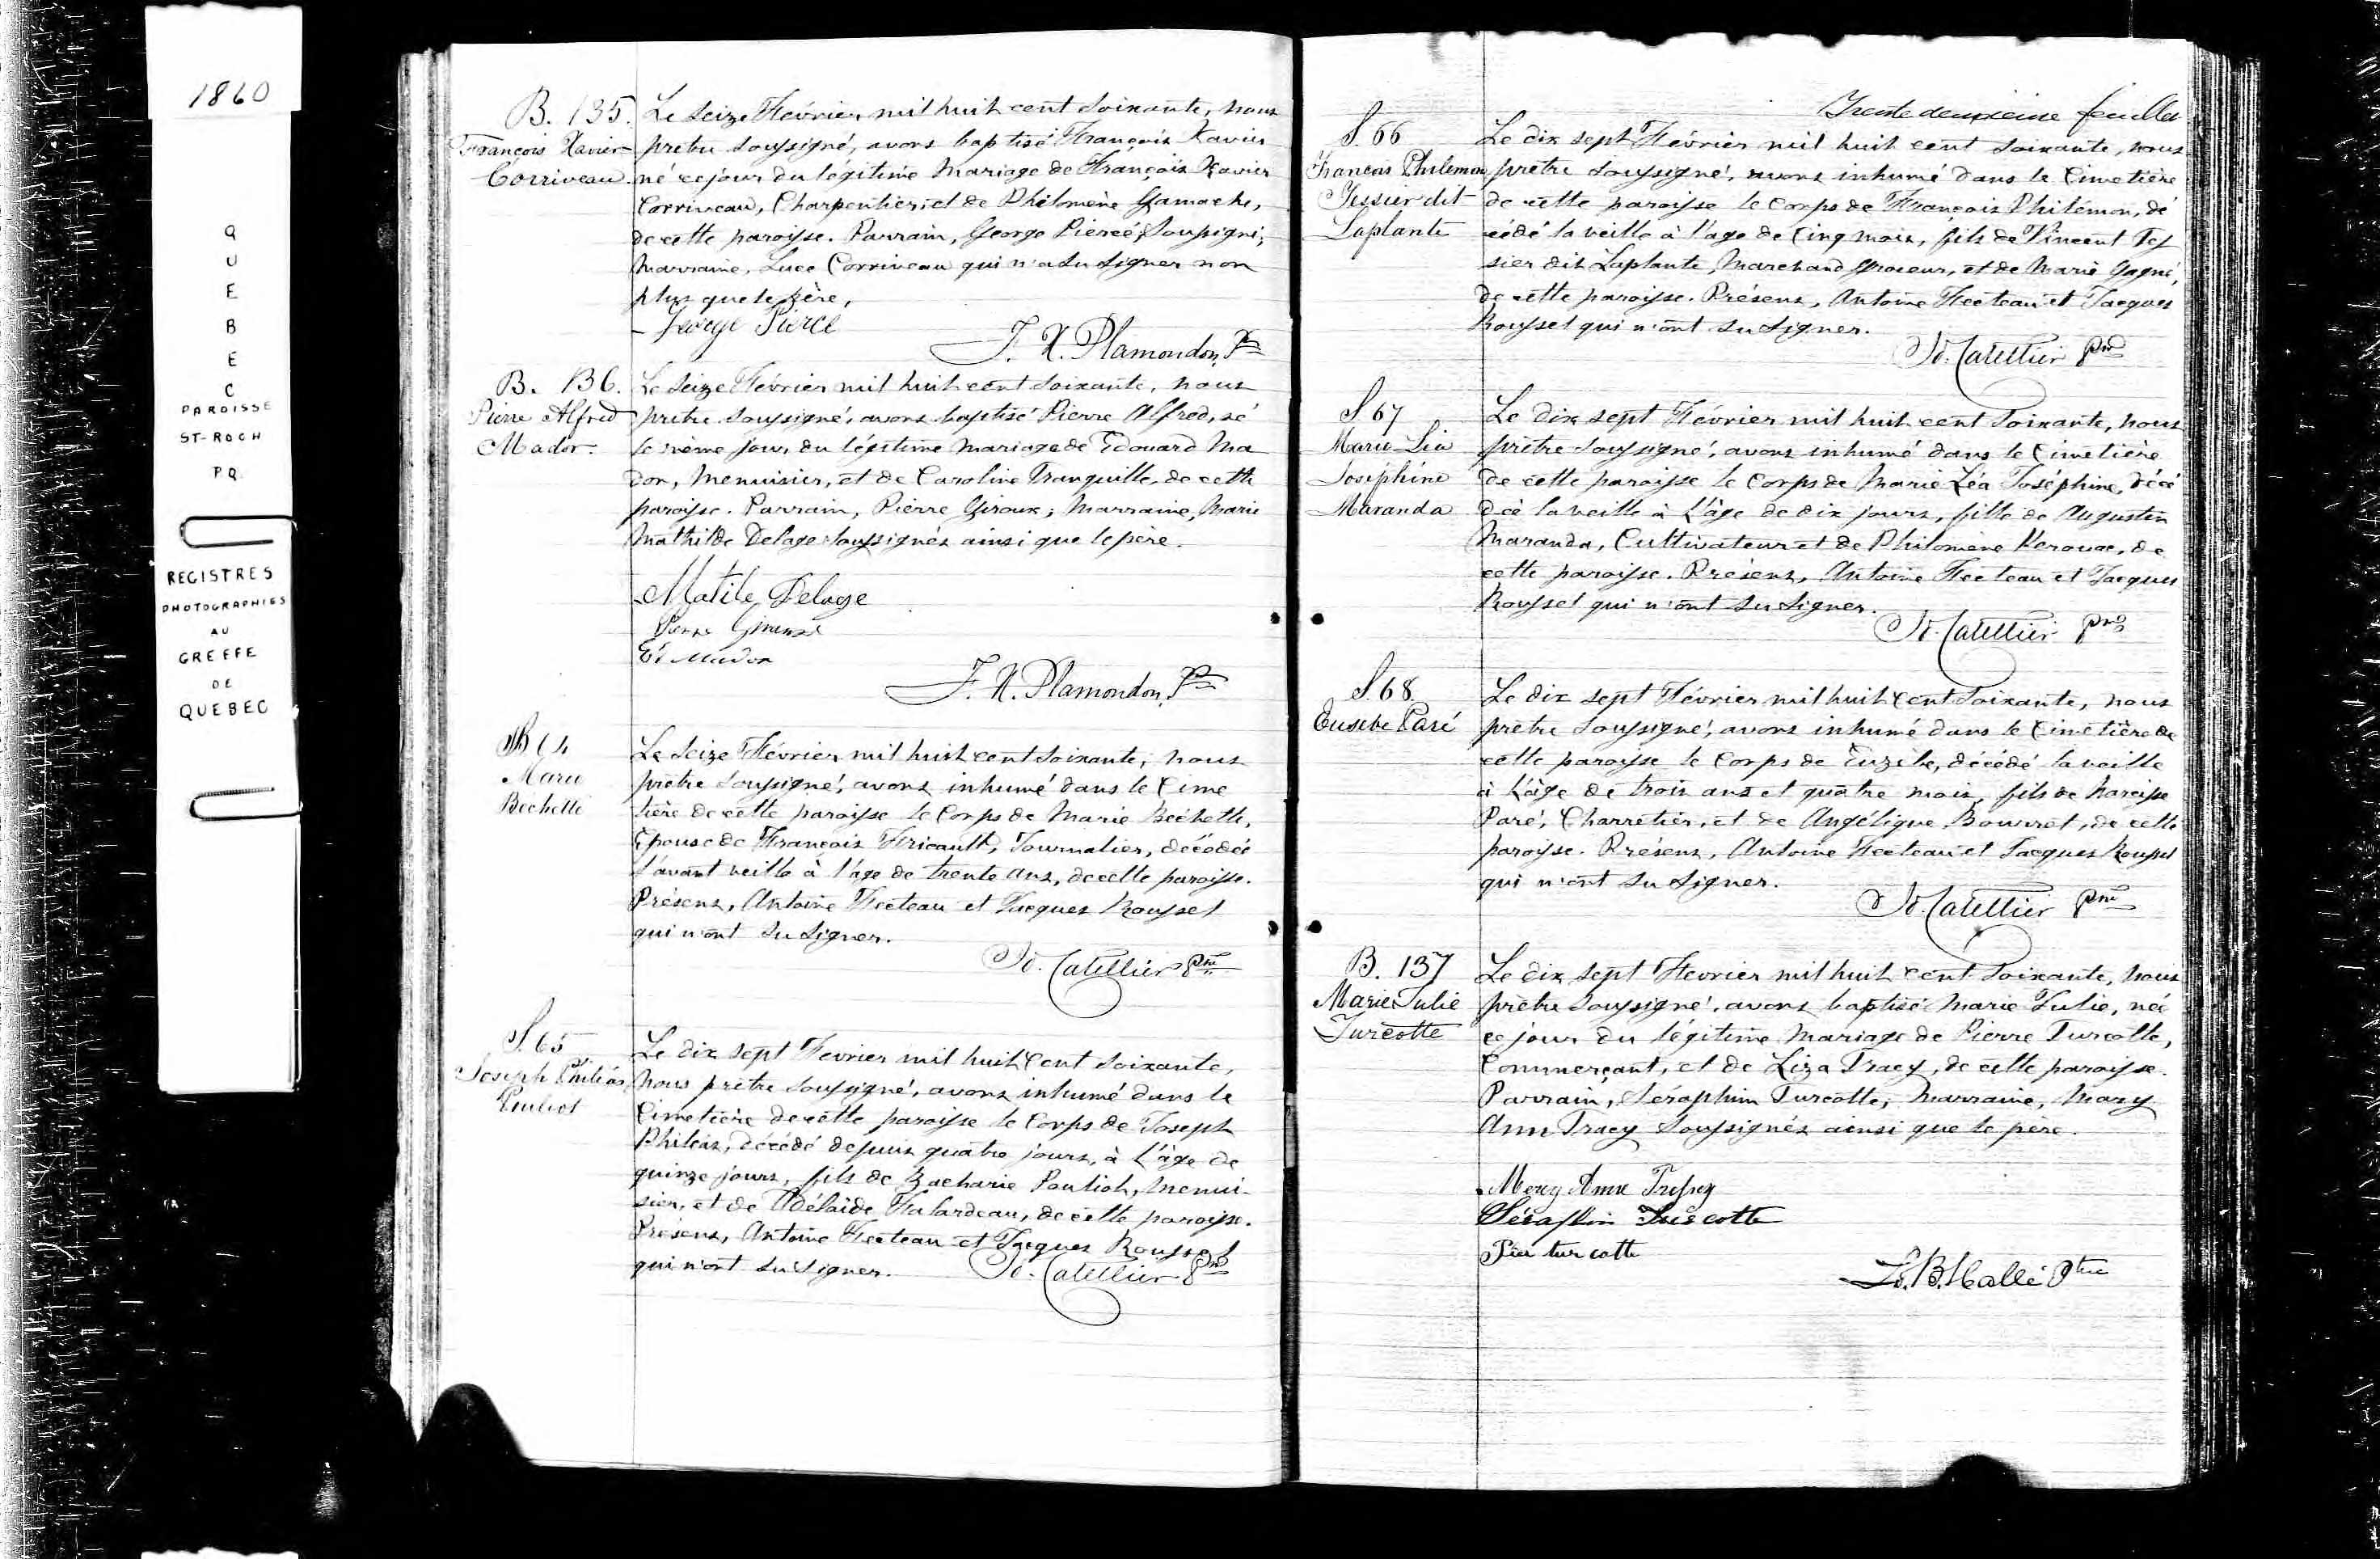 1860
QUEBEC
PAROISSE
ST-ROCH
P.Q.
REGISTRES
PHOTOGRAPHIES
AU
GREFFE
DE
QUEBEC
B. 135.
François Xavier
Corriveau.
Le seize Février mil huit cent soixante, nous
prêtre soussigné, avons baptisé François Xavier
né ce jour du légitime mariage de François Xavier
Corriveau, Charpentier, et de Philomène Gamache,
de cette paroisse. Parrain, George Piercé, soussigné;
Marraine, Luce Corriveau qui n'a su signer non
plus que le père.
George Piercé
F. X. Plamondon, Ptre
B. 136.
Pierre Alfred
Mador.
Le seize Février mil huit cent soixante, nous
prêtre soussigné, avons baptisé Pierre Alfred, né
le même jour, du légitime mariage de Edouard Ma
dor, Menuisier, et de Caroline Tranquille, de cette
paroisse. Parrain, Pierre Giroux; Marraine, Marie
Mathilde Delage soussignés ainsi que le père.
Matile Delage
Pierre
Ed Mador
F. X. Plamondon, Ptre
64
Marie
Bechette
Le seize Février mil huit cent soixante, nous
prêtre soussigné, avons inhumé dans le Cime
tière de cette paroisse le Corps de Marie Béchette,
Epouse de François Fricault, Journalier, décédée
l'avant veille à l'âge de trente ans, de cette paroisse.
Présens, Antoine Fecteau et Jacques Roussel
qui n'ont su signer.
Ed. Catellier Ptre
S. 65
Joseph Philéas
Pouliot
Le dix sept Fevrier mil huit Cent soixante,
nous prêtre soussigné, avons inhumé dans le
Cimetière de cette paroisse le Corps de Joseph
Philéas, décédé depuis quatre jours, à l'âge de
quinze jours, fils de Zacharie Pouliot, menui-
sier, et de Adélaide Falardeau, de cette paroisse.
Présens, Antoine Fecteau et Jacques Roussel
qui n'ont su signer.
Ed. Catellier Ptre
Trente deuxième feuillet
S. 66
François Philemon
Tessier dit
Laplante
Le dix sept Février mil huit cent soixante, nous
prêtre soussigné, avons inhumé dans le Cimetière
de cette paroisse le Corps de François Philémon, dé
cédé la veille à l'âge de Cinq mois, fils de Vincent Tes
sier dit Laplante, Marchand Groceur, et de Marie Gagné,
de cette paroisse. Présens, Antoine Fecteau et Jacques
Roussel qui n'ont su signer.
Ed. Catellier Ptre
S. 67
Marie Léa
Joséphine
Maranda
Le dix sept Février mil huit cent soixante, nous
prêtre soussigné, avons inhumé dans le Cimetière
de cette paroisse le Corps de Marie Léa Joséphine, décé
dée la veille à l'âge de dix jours, fille de Augustin
Maranda, Cultivateur et de Philomène Kerouac, de
cette paroisse. Présens, Antoine Fecteau et Jacques
Roussel qui n'ont su signer.
Ed. Catellier Ptre
S. 68.
Eusebe Paré
Le dix sept Février mil huit Cent soixante, nous
prêtre soussigné, avons inhumé dans le Cimetière de
cette paroisse le Corps de Euzèbe, décédé la veille
à l'âge de trois ans et quatre mois, fils de Narcisse
Paré, Charretier, et de Angélique Bourret, de cette
paroisse. Présens, Antoine Fecteau et Jacques Roussel
qui n'ont su signer.
Ed. Catellier Ptre
B. 137
Marie Julie
Turcotte
Le dix sept Fevrier mil huit cent soixante, nous
prêtre soussigné, avons baptisé Marie Julie, née
ce jour du légitime mariage de Pierre Turcotte,
Commerçant, et de Liza Tracy, de cette paroisse.
Parrain, Séraphin Turcotte; Marraine, Mary
Ann Tracy soussignés ainsi que le père.
Mary Ann
Séraphin Turcotte
turcotte
Hallé Ptre